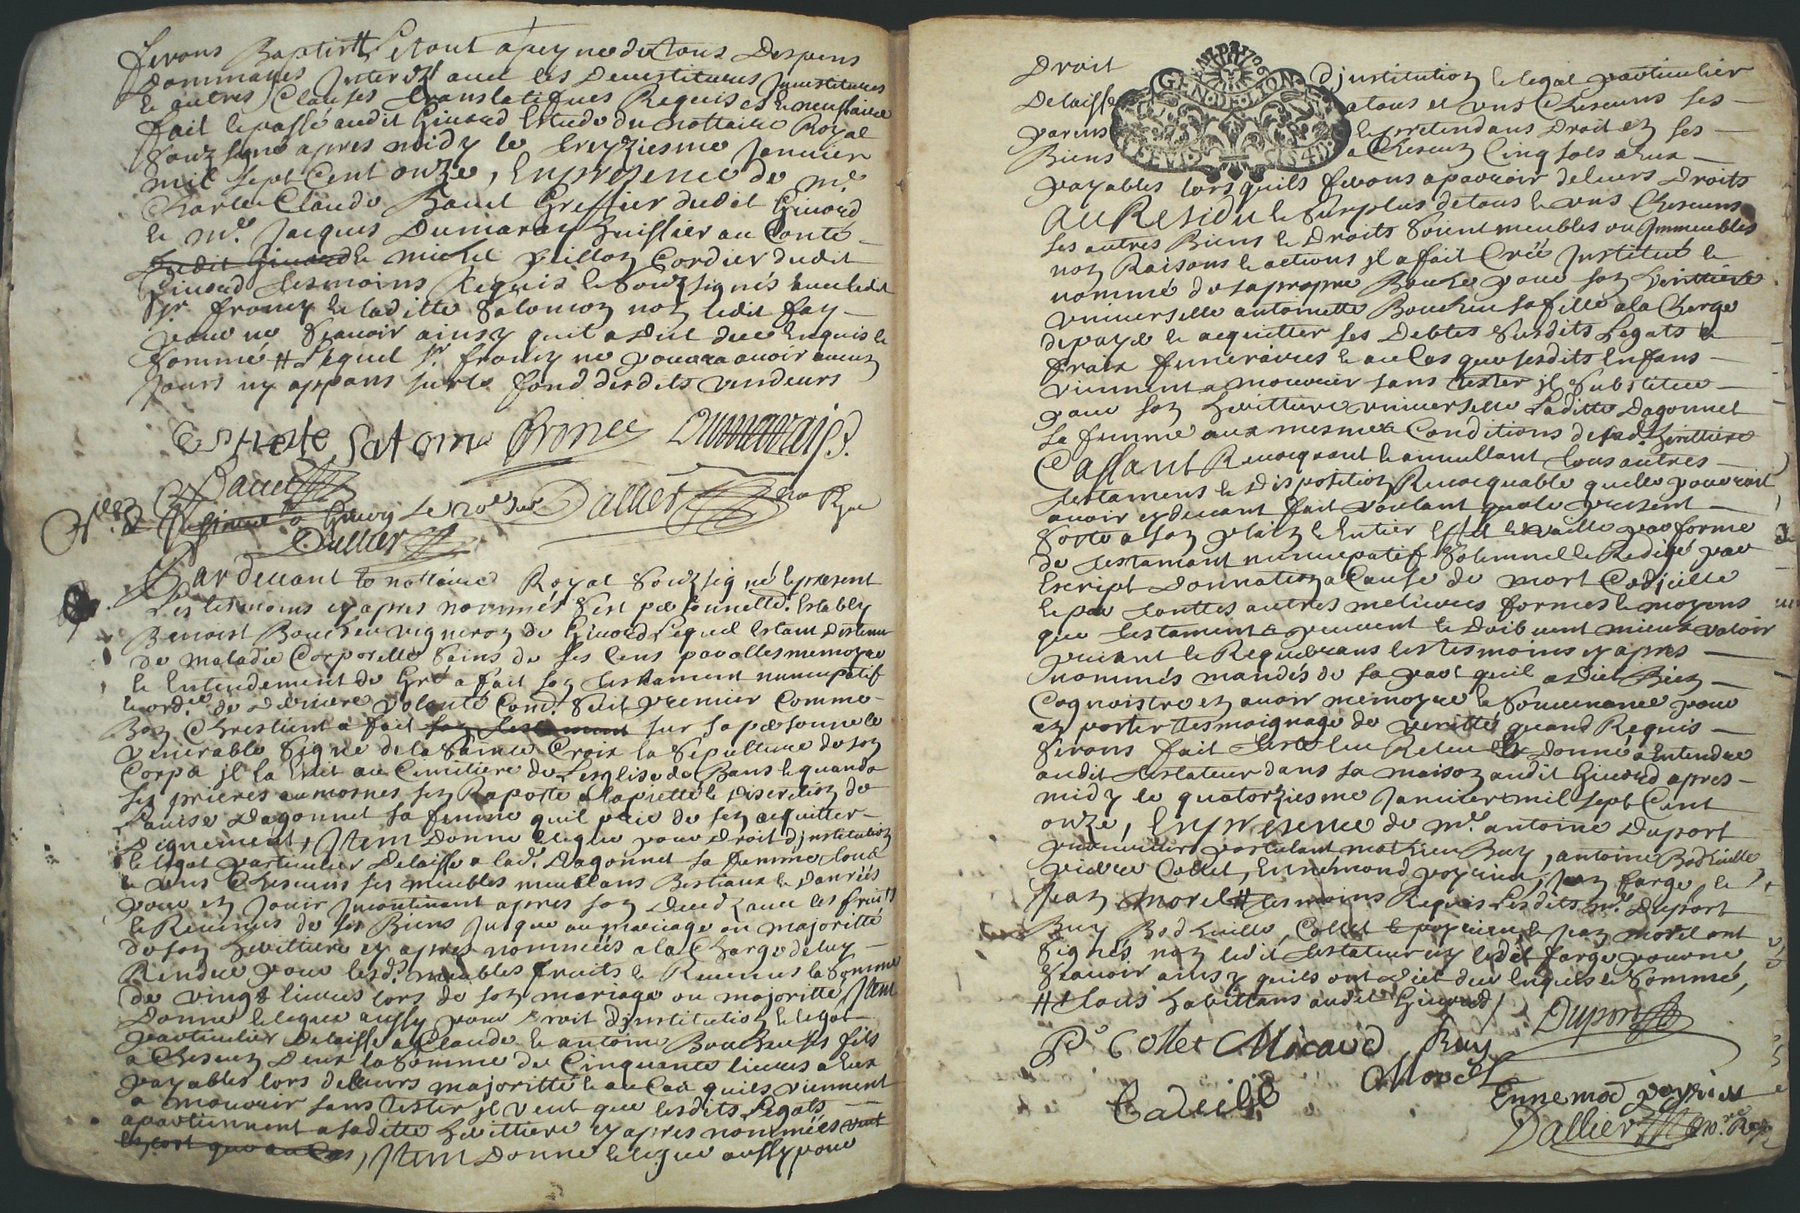 serons Baptist Et tout a peyne de tous Despens
Dommages Interest auec les Deuestitures Inuestitures
& autres Clauses translatifues Requises & neussaire
fait & passé audit Giuord Estude du nottaire Royal
Souzsigné apres midy le treziesme Januier
mil sept Cent onze, En presence de mr.
Charle Claude Bauet Greffier dudit Giuord
& mr. Jacques Dumarais huissier au Conte
dudit Giuord & michel Cordier dudit
Giuord tesmoins Requis & Souzsignés auec ledit
Sr. francy & laditte Salomoz noz ledit fay
pour ne Scauoir ainsy quil a dit due Enquis &
Somme # lequel Sr. francy ne pourra auoir aucuns
Jours ny appans sur le fond desdits vendeurs
estiene Salomo france Dumarais.
Bauet
a Giuors le 20e Dallier no Roy
Dallier
Pardeuant le nottaire Royal Souzsigné & present
les tesmoins cy apres nommés S'est personnellemt. Estably
Benoist Boucheu vigneroz de Giuord lequel Estant Detenu
de maladie Corporelle Sains de ses sens parolles memoyre
& Entendement de Gré a fait soz testament nuncupatif
& ordce. de derniere volonté Comd. Suit premier Comme
Boz Chrestient a fait soz testament sur sa personne le
venerable Signe de la Sainte Croix la Sepulture de soz
Corps il la Eslit au Cimitiere de L'esglise de Bans & quand a
ses prieres aumosnes sez Raporte a la pietté & Discretioz de
Louise Dagonnet sa femme quil prie de sez acquitter
Dignement, Item Donne & legue pour Droit d'institutioz
& legat particulier Delaisse a lade. Dagonnet sa femme tous
& vns Chescuns ses meubles meublans Bestiaux & Danrées
pour ez Jouir Incontinant apres soz Decedz auec les fruits
& Reuenus de ses Biens Jusque au mariage ou majoritté
de soz heritiere cy apres nommées a la Charge de luy
Rendre pour lesds. meubles fruits & Reuenus la Somme
de vingt liures lors de soz mariage ou majoritté, Item
Donne & legue aussy pour Droit d'institutioz & legat
particulier Delaisse a Claude & antoine Boucheu ses fils
a Chescuz d'eux la Somme de Cinquante liures a Eux
payables lors de leurs majoritté & au Cas quils viennent
a mourir sans tester il veut que lesdits Legats
apartiennent a saditte heritiere cy apres nommées
Item Donne & legue aussy pour
GEN.DE.LION
Droit d'institutioz & legat particulier
Delaisse a tous et vns Chescuns ses
parens & pretendans Droit ez ses
Biens a Chescuz Cinq sols a Eux
payables lors quils feront aparoir de leurs Droits
Au Residu & Surplus de tous & vns Chescuns
ses autres Biens & Droits Soient meubles ou Immeubles
noz Raisons & actions il a fait Créé Institué &
nommé de sa propre Bouche pour soz heritiere
vniuerselle antoinette Boucheu sa fille a la Charge
de payer & acquitter ses Debtes Susdits Legats &
fraix funeraires & au Cas que sesdits Enfans
viennent a mourir sans tester il Substitue
pour soz heritiere vniuerselle laditte Dagonnet
sa femme aux mesmes Conditions de sad. heritiere
Cassant Reuocquant & annullant tous autres
testamens & Dispositioz Reuocquable quelle pourroit
auoir cy deuant fait voulant que le present
Sorte a soz plaiz & Entier Effet & vaille par forme
de testamant nuncupatif Solemnel & Redige par
Escript Donnatioz a Cause de mort Codicille
& par touttes autres melieures formes & moyens
que testament peuuent & Doibuent mieux valoir
priant & Requerans les tesmoins cy apres
nommés mandés de sa part quil a dit Biez
Cognoistre et auoir memoyre & Souuenance pour
ez porter tesmoignage de veritté quand Requis
Seront fait Leu Releu & donné a Entendre
audit testateur dans sa maisoz audit Giuord apres
midy le quatorziesme Januier mil sept Cent
onze, En presence de mr. antoine Duport
mathieu Buy, antoine Bodheulle,
pierre Collet, Ennemond voyrieu, Jeaz farge, &
Jeaz Morel # tesmoins Requis lesdits mr. Duport
Buy Bodheulle, Collet & voyrieu & Jeaz morel ont
Signés noz ledit testateur ny ledit farge pour ne
Scauoir ainsy quils ont dit due Enquis & Sommé,
# tous habittans audit Giuord /
Duport
P. Collet Micaud Buy
Morel
Badeile
Ennemod voyrieu
Dallier nore. Roy